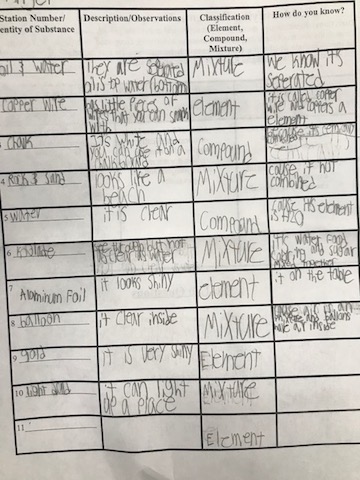 Station Number/
entity of Substance
Description/Observations
Classification
(Element,
Compound,
Mixture)
How do you know?
oil & water
they are
oil is top water (bottom)
Mixture
We know it's
seperated
copper wire
its little peces of
wires that you can
with
element
it is called copper
wire and coppers a
element
3 Chalk
its white and
Compound
4 Rock & Sand
looks like a
beach
Mixture
cause it not
combined
5 water
it is clear
Compound
cause its element
is H2O
6
as clear as water
Mixture
its water, food
and sugar
7 Aluminum Foil
it looks shiny
element
it on the table
8 balloon
it clear inside
Mixture
and balloons
have air inside
9 gold
it is very shiny
Element
10 light
it can light
up a place
Mixture
11
Element